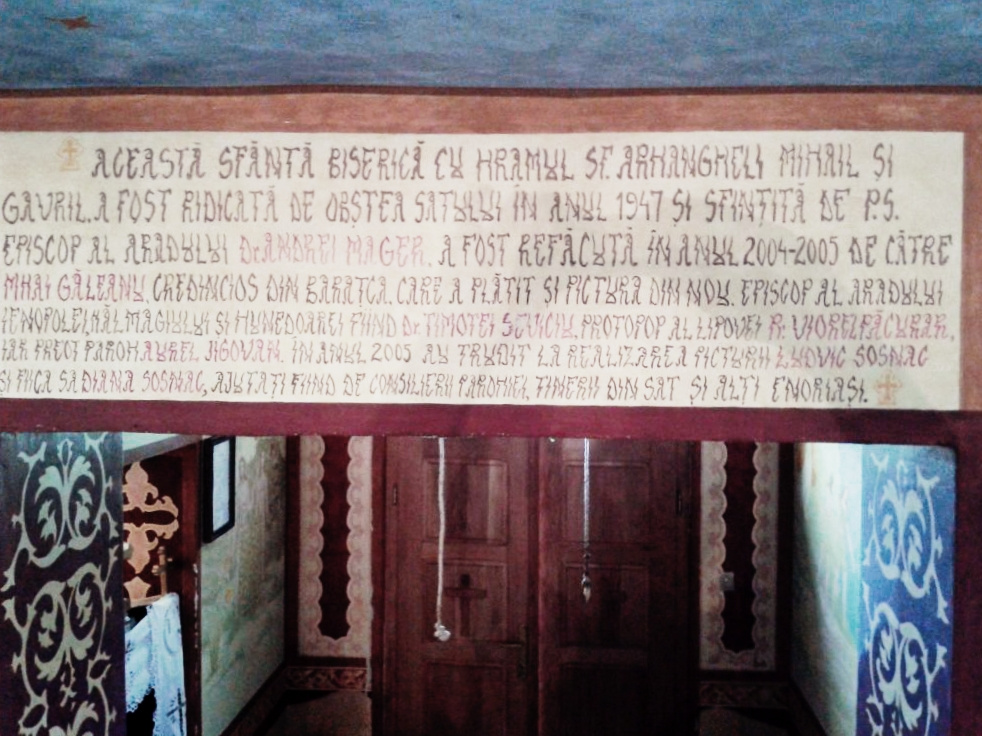 ACEASTĂ SFÂNTĂ BISERICĂ CU HRAMUL SF. ARHANGHELI MIHAIL ȘI
GAVRIL, A FOST RIDICATĂ DE OBȘTEA SATULUI ÎN ANUL 1947 ȘI SFINȚITĂ DE P.S.
EPISCOP AL ARADULUI Dr ANDREI MAGER. A FOST REFĂCUTĂ ÎN ANUL 2004-2005 DE CĂTRE
MIHAI GĂLEANU, CREDINCIOS DIN BARAȚCA, CARE A PLĂTIT ȘI PICTURA DIN NOU. EPISCOP AL ARADULUI
IENOPOLEI, HĂLMAGIULUI ȘI HUNEDOAREI FIIND Dr TIMOTEI SEVICIU, PROTOPOP AL LIPOVEI R. VIOREL PĂCURAR,
IAR PREOT PAROH AUREL JIGOVAN. ÎN ANUL 2005 AU TRUDIT LA REALIZAREA PICTURII LUDVIC SOSNAC
ȘI FIICA SA DIANA SOSNAC, AJUTAȚI FIIND DE CONSILIERII PAROHIEI, TINERII DIN SAT ȘI ALȚI ENORIAȘI.